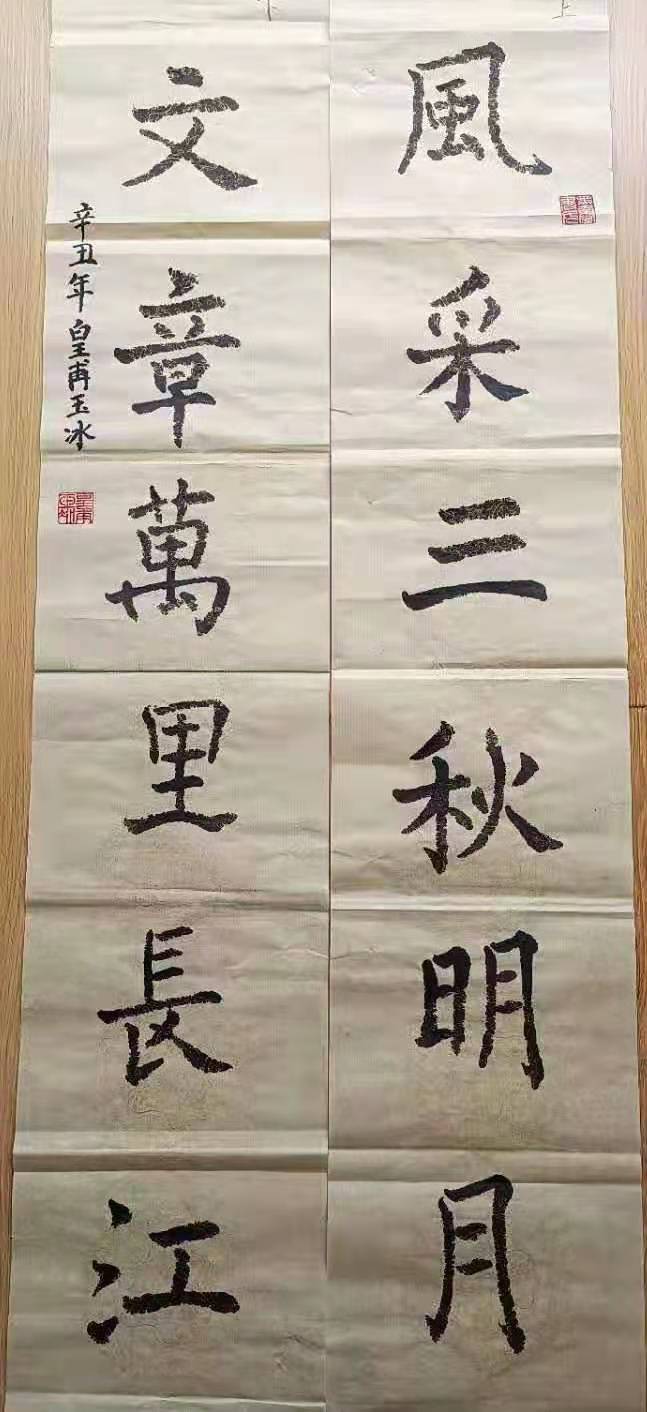 上
風采三秋明月
文章萬里長江
辛丑年皇甫玉冰